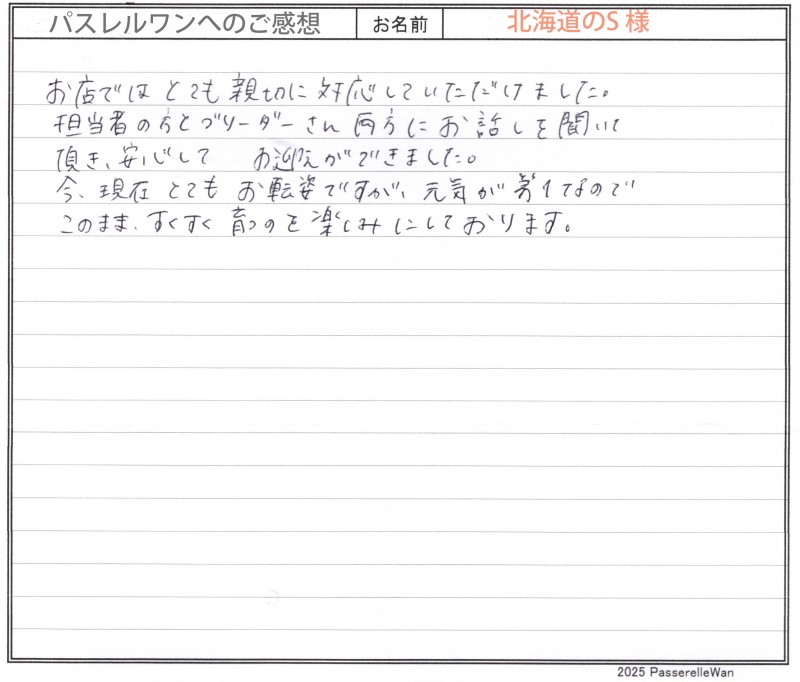 パスレルワンへのご感想 お名前 北海道のS 様
お店では とても 親切に 対応していただけました。
担当者の方とブリーダーさん 両方に お話しを聞いて
頂き、安心して お迎えができました。
今、現在 とても お転姿ですが、元気が第1なので
このまま、すくすく 育つのを 楽しみにしております。
2025 PasserelleWan